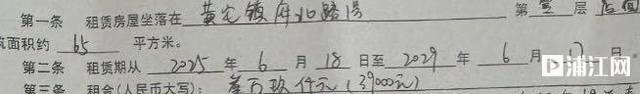 第一条 租赁房屋坐落在 黄宅镇府北路 第 壹 层 店面
筑面积约 65 平方米。
第二条 租赁期从 2025 年 6 月 18 日至 2029 年 6 月 17 日。
第三条 租金(人民币大写): 叁万玖仟元(39000元)
浦江网